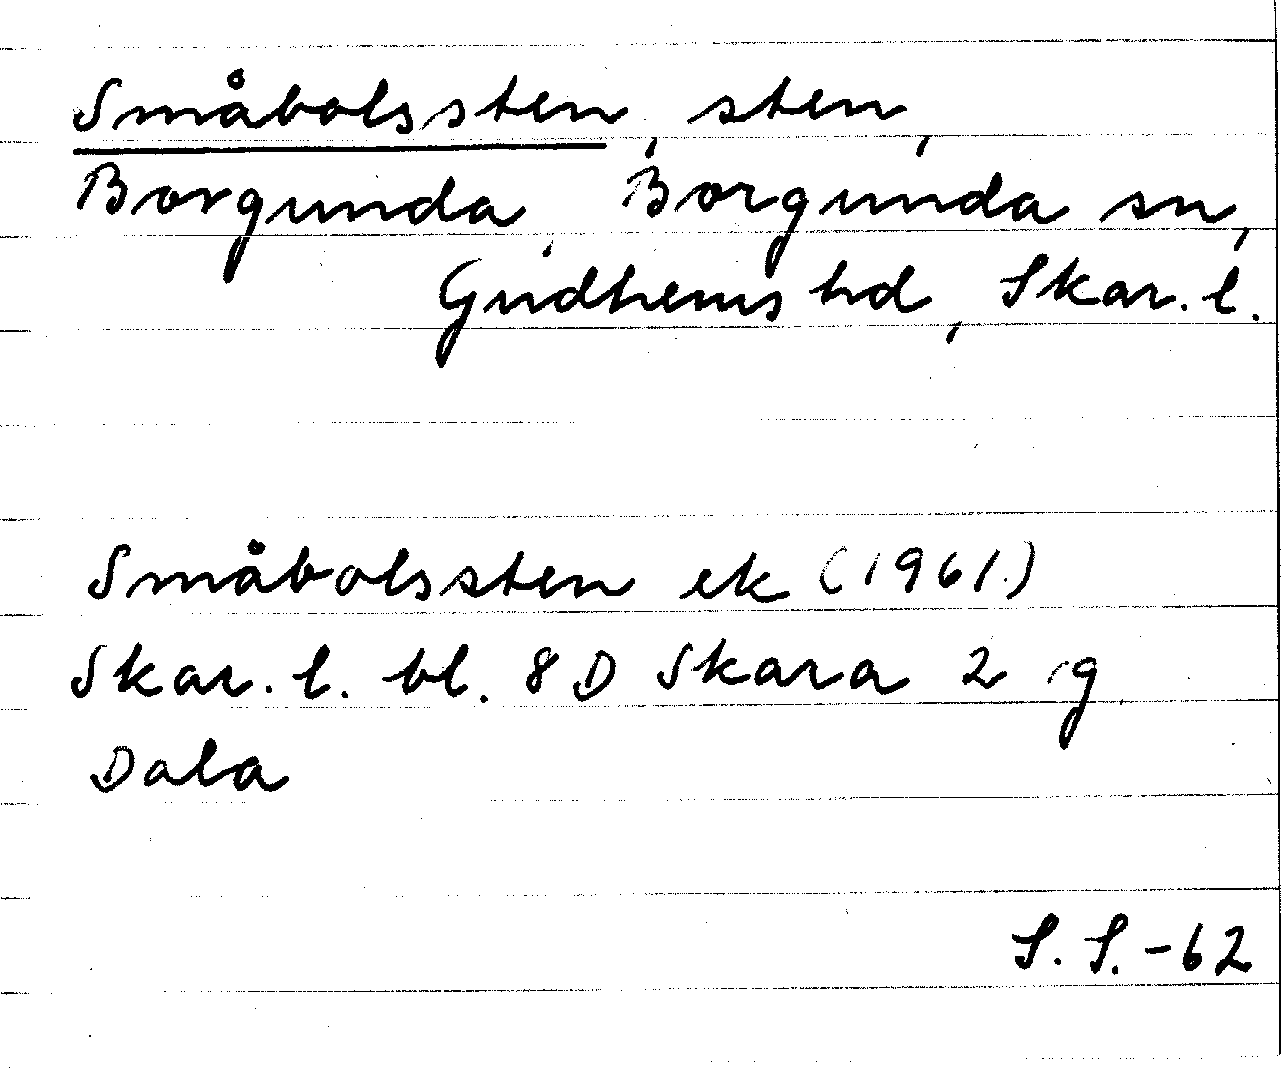 Småbolssten, sten,
Borgunda, Borgunda sn,
Gudhems hd, Skar. l.
Småbolssten ek (1961)
Skar. l. bl. 8D Skara 2 g
Dala
S. S. -62